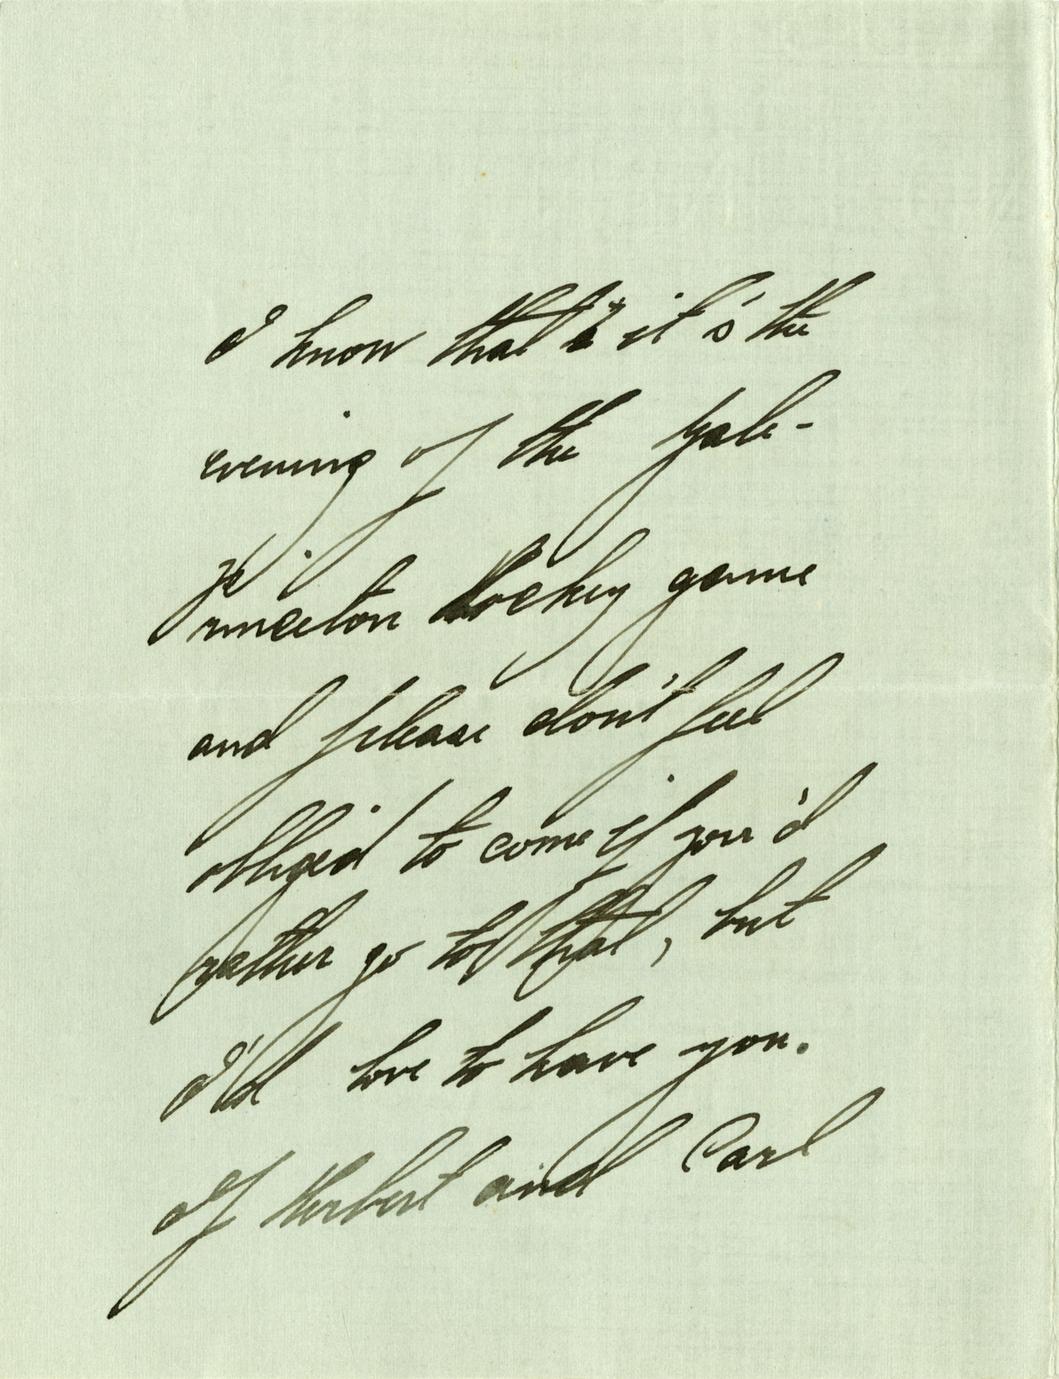 I know that it's the
evening of the Yale-
Princeton hockey game
and please don't feel
obliged to come if you'd
rather go to that, but
I'd love to have you.
If Herbert and Carl